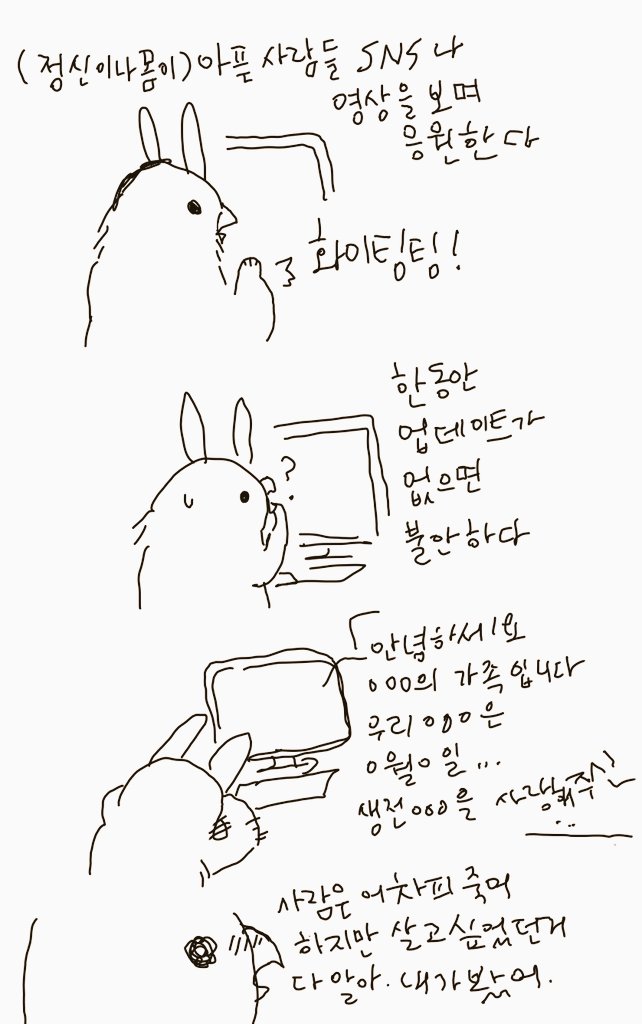 (정신이나 몸이) 아픈 사람들 SNS나
영상을 보며
응원한다
화이팅팅!
한동안
업데이트가
없으면
?
불안하다
「안녕하세요
OOO의 가족입니다
우리 OOO은
O월 O일...
생전 OOO을 사랑해주신
...
사람은 어차피 죽어
하지만 살고싶었던거
다 알아. 내가 봤어.